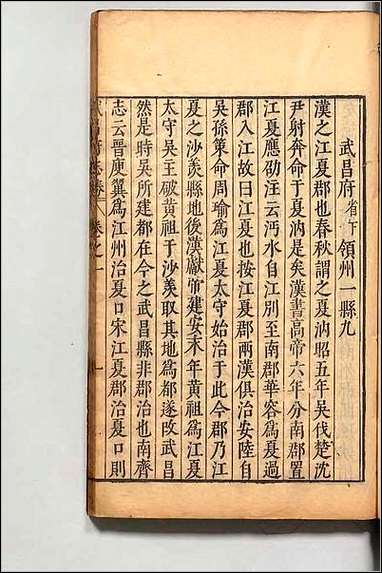 武昌府省下領州一縣九
漢之江夏郡也春秋謂之夏汭昭五年吳伐楚沈
尹射奔命于夏汭是矣漢書高帝六年分南郡置
江夏應劭注云沔水自江別至南郡華容為夏過
郡入江故曰江夏也按江夏郡兩漢俱治安陸自
吳孫策命周瑜爲江夏太守始治于此今郡乃江
夏之沙羨縣地後漢獻帝建安末年黄祖爲江夏
太守吳王破黄祖于沙羨取其地爲都遂改武昌
然是時吳所建都在今之武昌縣非郡治也南齊
志云晉庾翼爲江州治夏口宋江夏郡治夏口則
武昌府志 卷之一